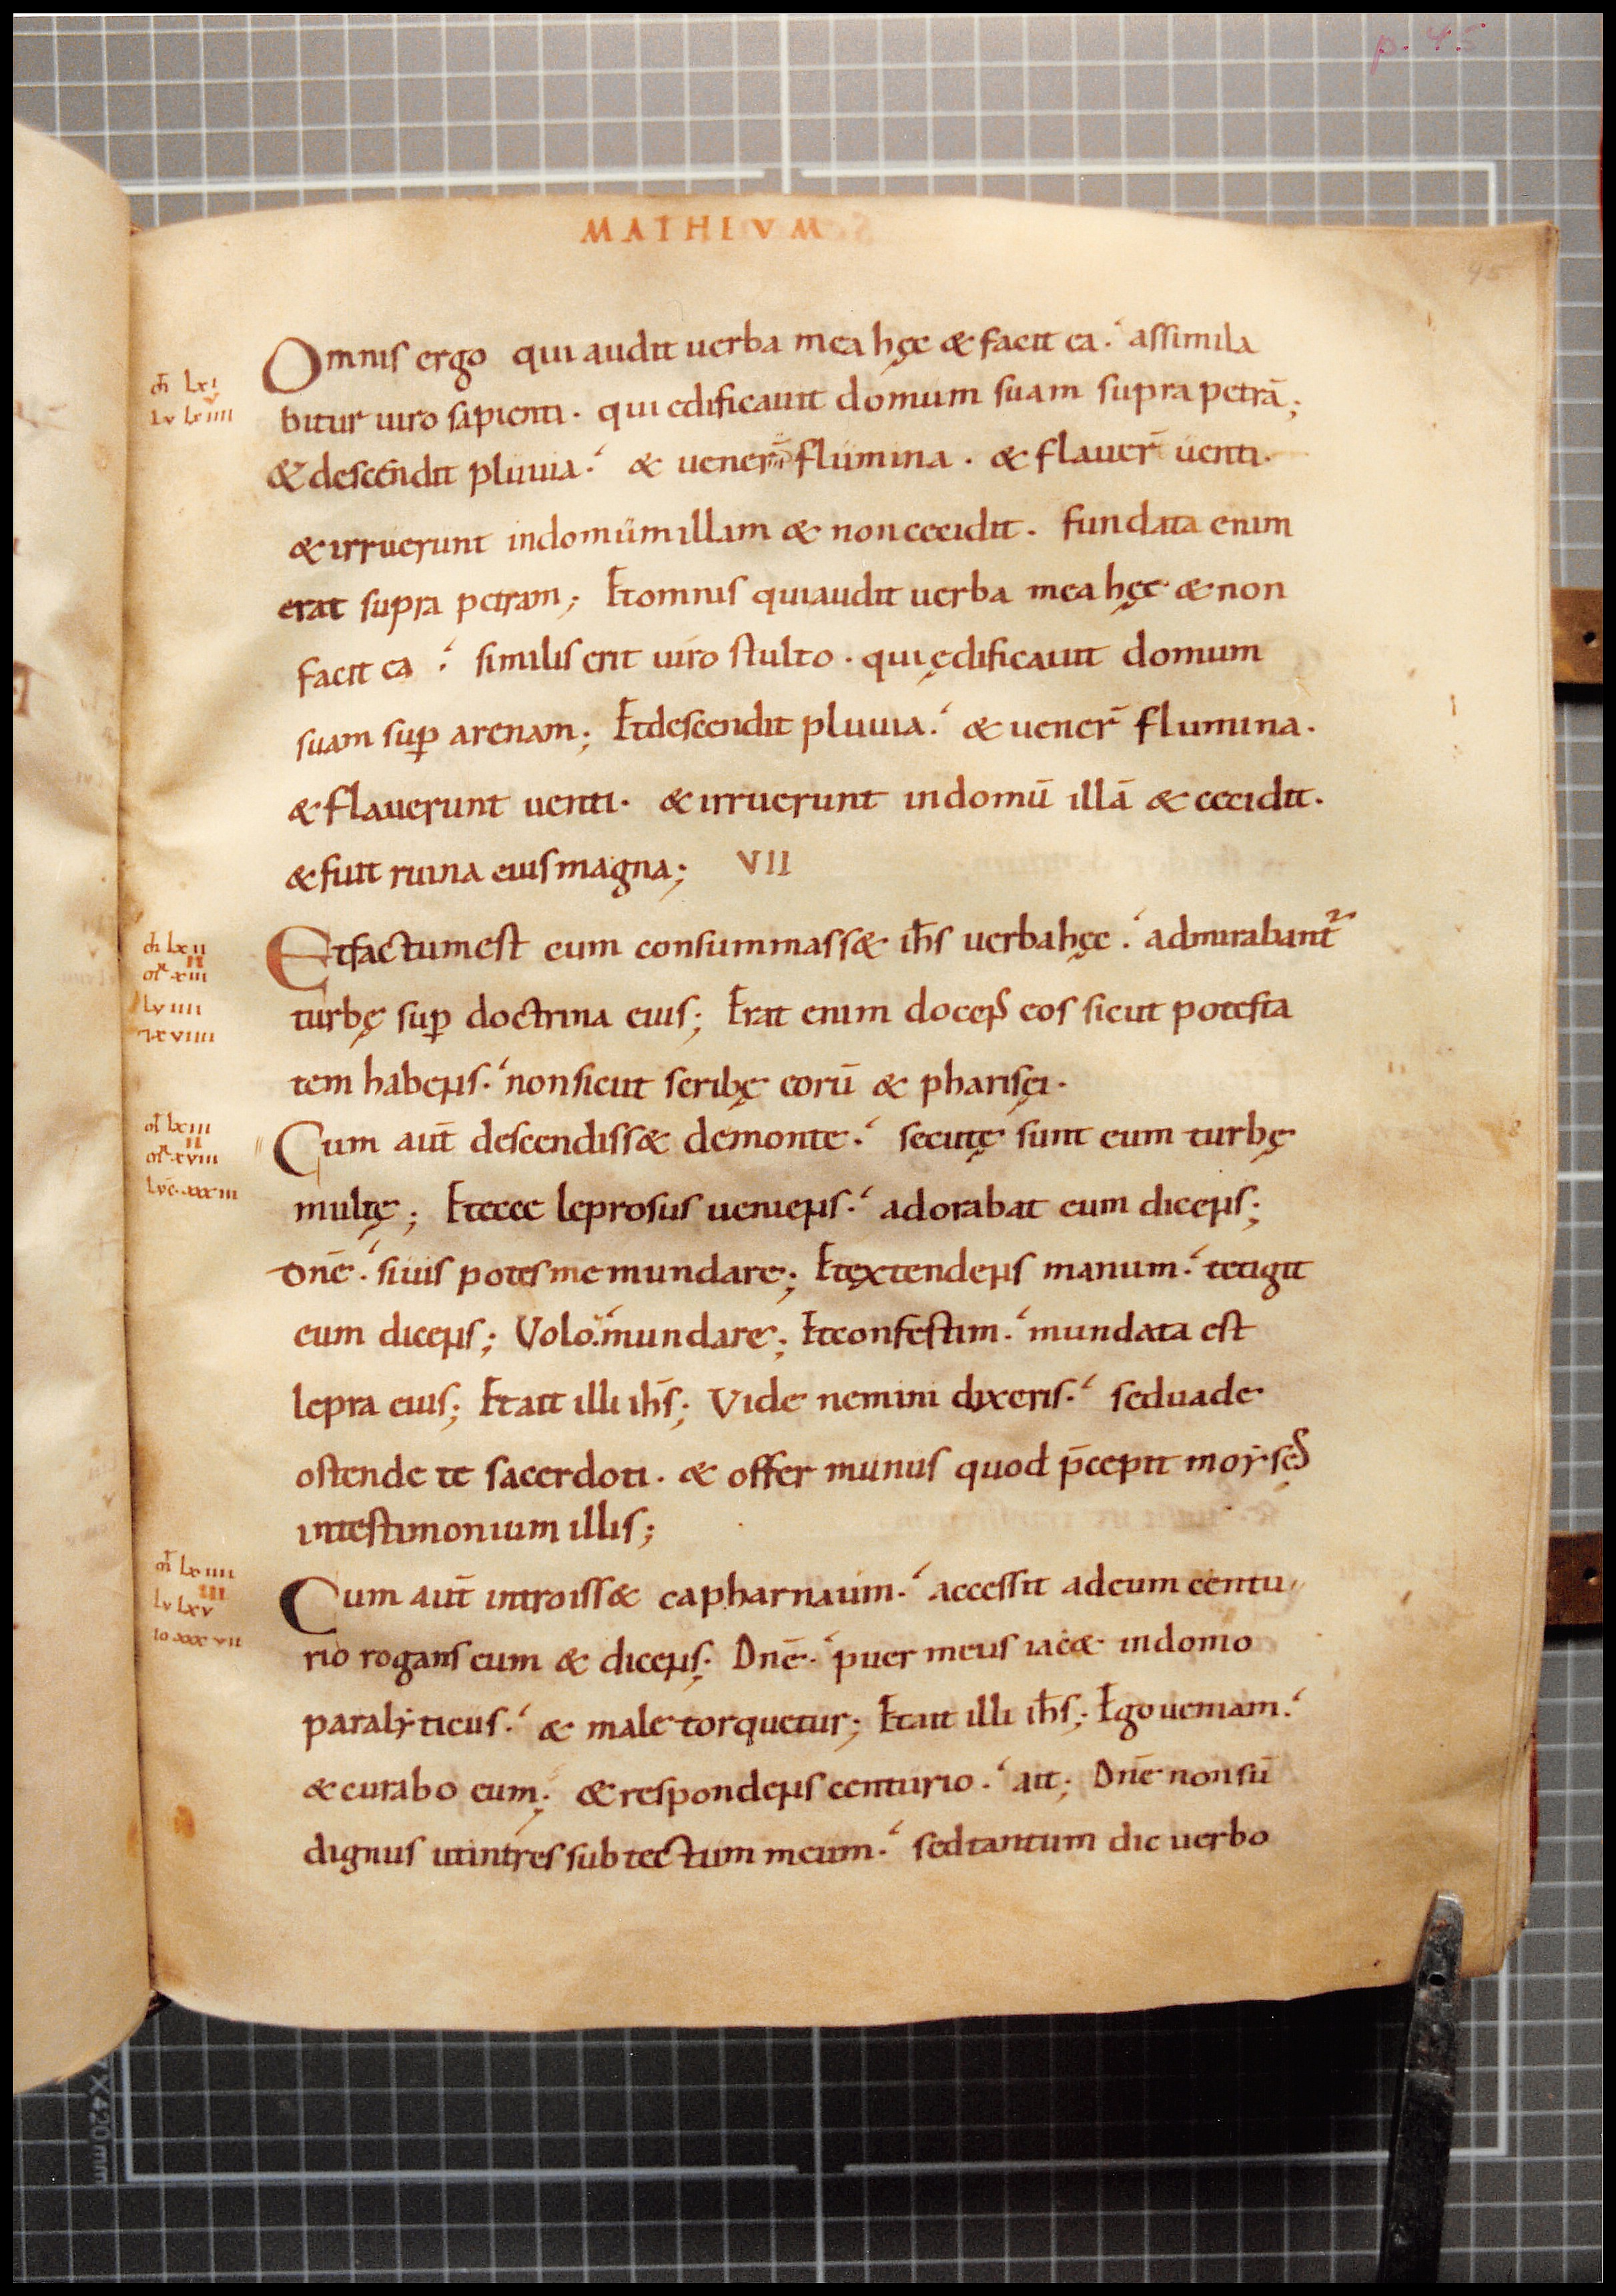 p. 45
MATHEVM
45
Omnis ergo qui audit uerba mea hęc & facit ea. assimila
mt lxi
lu lxiiii
bitur uiro sapienti. qui edificauit domum suam supra petrā;
& descendit pluuia. & uener̄ flumina. & flauer̄ uenti.
& irruerunt in domum illam & non cecidit. fundata enim
erat supra petram; Et omnis qui audit uerba mea hęc & non
facit ea. similis erit uiro stulto. qui ędificauit domum
suam suꝑ arenam; Et descendit pluuia. & uener̄ flumina.
& flauerunt uenti. & irruerunt in domū illā & cecidit.
& fuit ruina eius magna; VII
Et factum est cum consummass& ih̄s uerba hęc. admirabant᷑
turbę suꝑ doctrina eius; Erat enim docens eos sicut potesta
tem habens. non sicut scribę eorū & pharisęi.
Cum aut̄ descendiss& de monte. secutę sunt eum turbę
multę; Et ecce leprosus ueniens. adorabat eum dicens;
Dn̄e. si uis potes me mundare; Et extendens manum. tetigit
eum dicens; Volo. mundare; Et confestim. mundata est
lepra eius; Et ait illi ih̄s; Vide nemini dixeris. sed uade
ostende te sacerdoti. & offer munus quod p̄cepit moyses
in testimonium illis;
Cum aut̄ introiss& capharnaum. accessit ad eum centu
rio rogans eum & dicens. Dn̄e. puer meus iac& in domo
paralyticus. & male torquetur; Et ait illi ih̄s; Ego ueniam.
& curabo eum; & respondens centurio. ait; Dn̄e non sū
dignus ut intres sub tectum meum. sed tantum dic uerbo